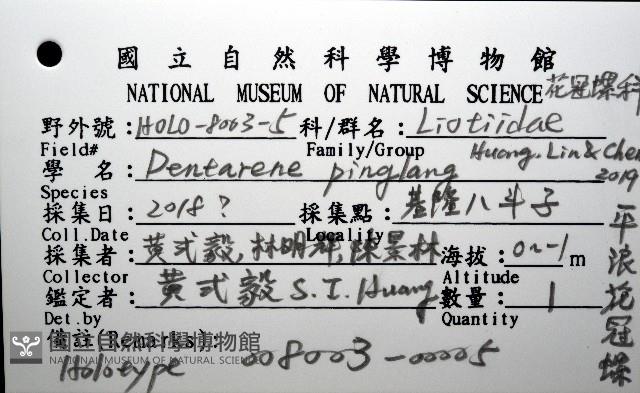 國立自然科學博物館
NATIONAL MUSEUM OF NATURAL SCIENCE 花冠螺科
野外號：HOLO-8003-5 科/群名：Liotiidae
Field# Family/Group Huang, Lin & Chen
學名：Dentarene pinglang 2019
Species
採集日：2018? 採集點：基隆八斗子
Coll.Date Locality
採集者：黃式毅, 林明輝, 陳景林 海拔：0~-1 m
Collector Altitude
鑑定者：黃式毅 S.I. Huang 數量：1
Det.by Quantity
平浪花冠螺
備註(Remarks)：
Holotype 008003-00005
國立自然科學博物館
NATIONAL MUSEUM OF NATURAL SCIENCE